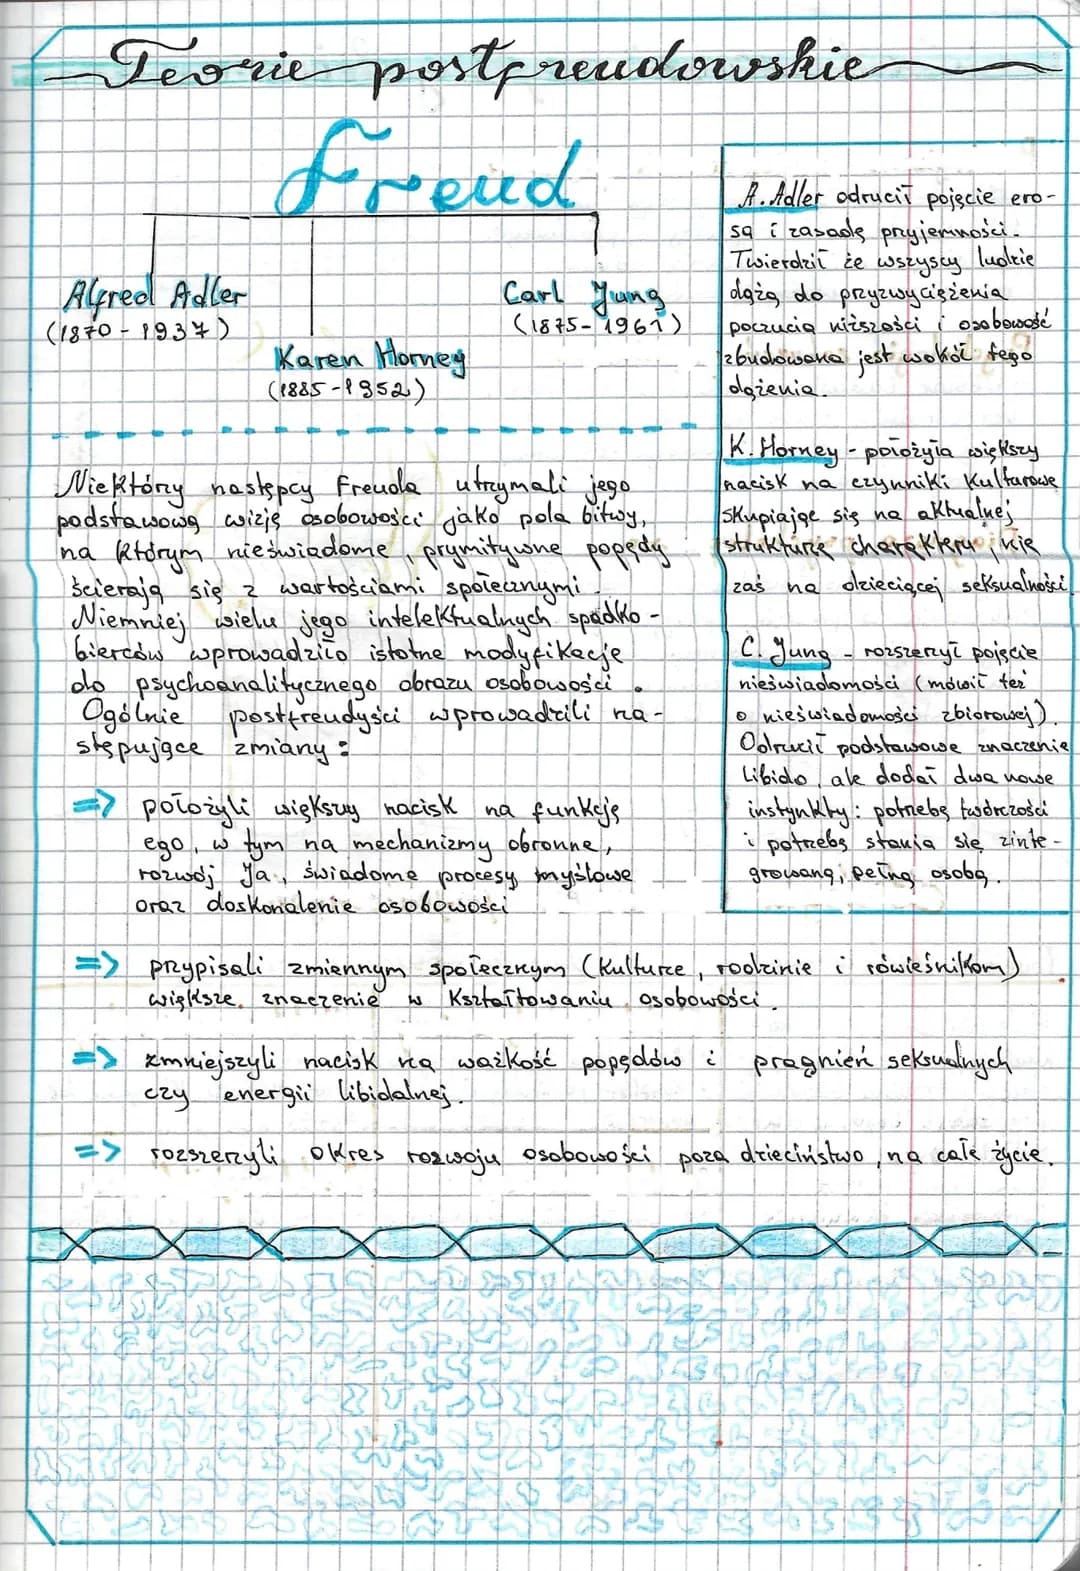 Teorie postfreudowskie
Freud
Alfred Adler
(1870 - 1937)
Karen Horney
(1885 - 1952)
Carl Jung
(1875 - 1961)
Niektórzy następcy Freuda utrzymali jego
podstawową wizję osobowości jako pola bitwy,
na którym nieświadome, prymitywne popędy
ścierają się z wartościami społecznymi.
Niemniej wielu jego intelektualnych spadko-
bierców wprowadziło istotne modyfikacje
do psychoanalitycznego obrazu osobowości.
Ogólnie postfreudyści wprowadzili na-
stępujące zmiany:
=> położyli większy nacisk na funkcję
ego, w tym na mechanizmy obronne,
rozwój Ja, świadome procesy myślowe
oraz doskonalenie osobowości
=> przypisali zmiennym społecznym (kulturze, rodzinie i rówieśnikom)
większe znaczenie w kształtowaniu osobowości.
=> zmniejszyli nacisk na ważkość popędów i pragnień seksualnych
czy energii libidalnej.
=> rozszerzyli okres rozwoju osobowości poza dzieciństwo, na całe życie.
A. Adler odrucił pojęcie ero-
sa i zasadę przyjemności.
Twierdził że wszyscy ludzie
dążą do przyzwyciężenia
poczucia niższości i osobowość
zbudowana jest wokół tego
dążenia.
K. Horney - położyła większy
nacisk na czynniki kulturowe
skupiając się na aktualnej
strukturze charakteru, nie
zaś na dziecięcej seksualności.
C. Jung - rozszerzył pojęcie
nieświadomości (mówił też
o nieświadomości zbiorowej).
Odrzucił podstawowe znaczenie
libido, ale dodał dwa nowe
instynkty: potrzebę twórczości
i potrzebę stania się zinte-
growaną, pełną osobą.